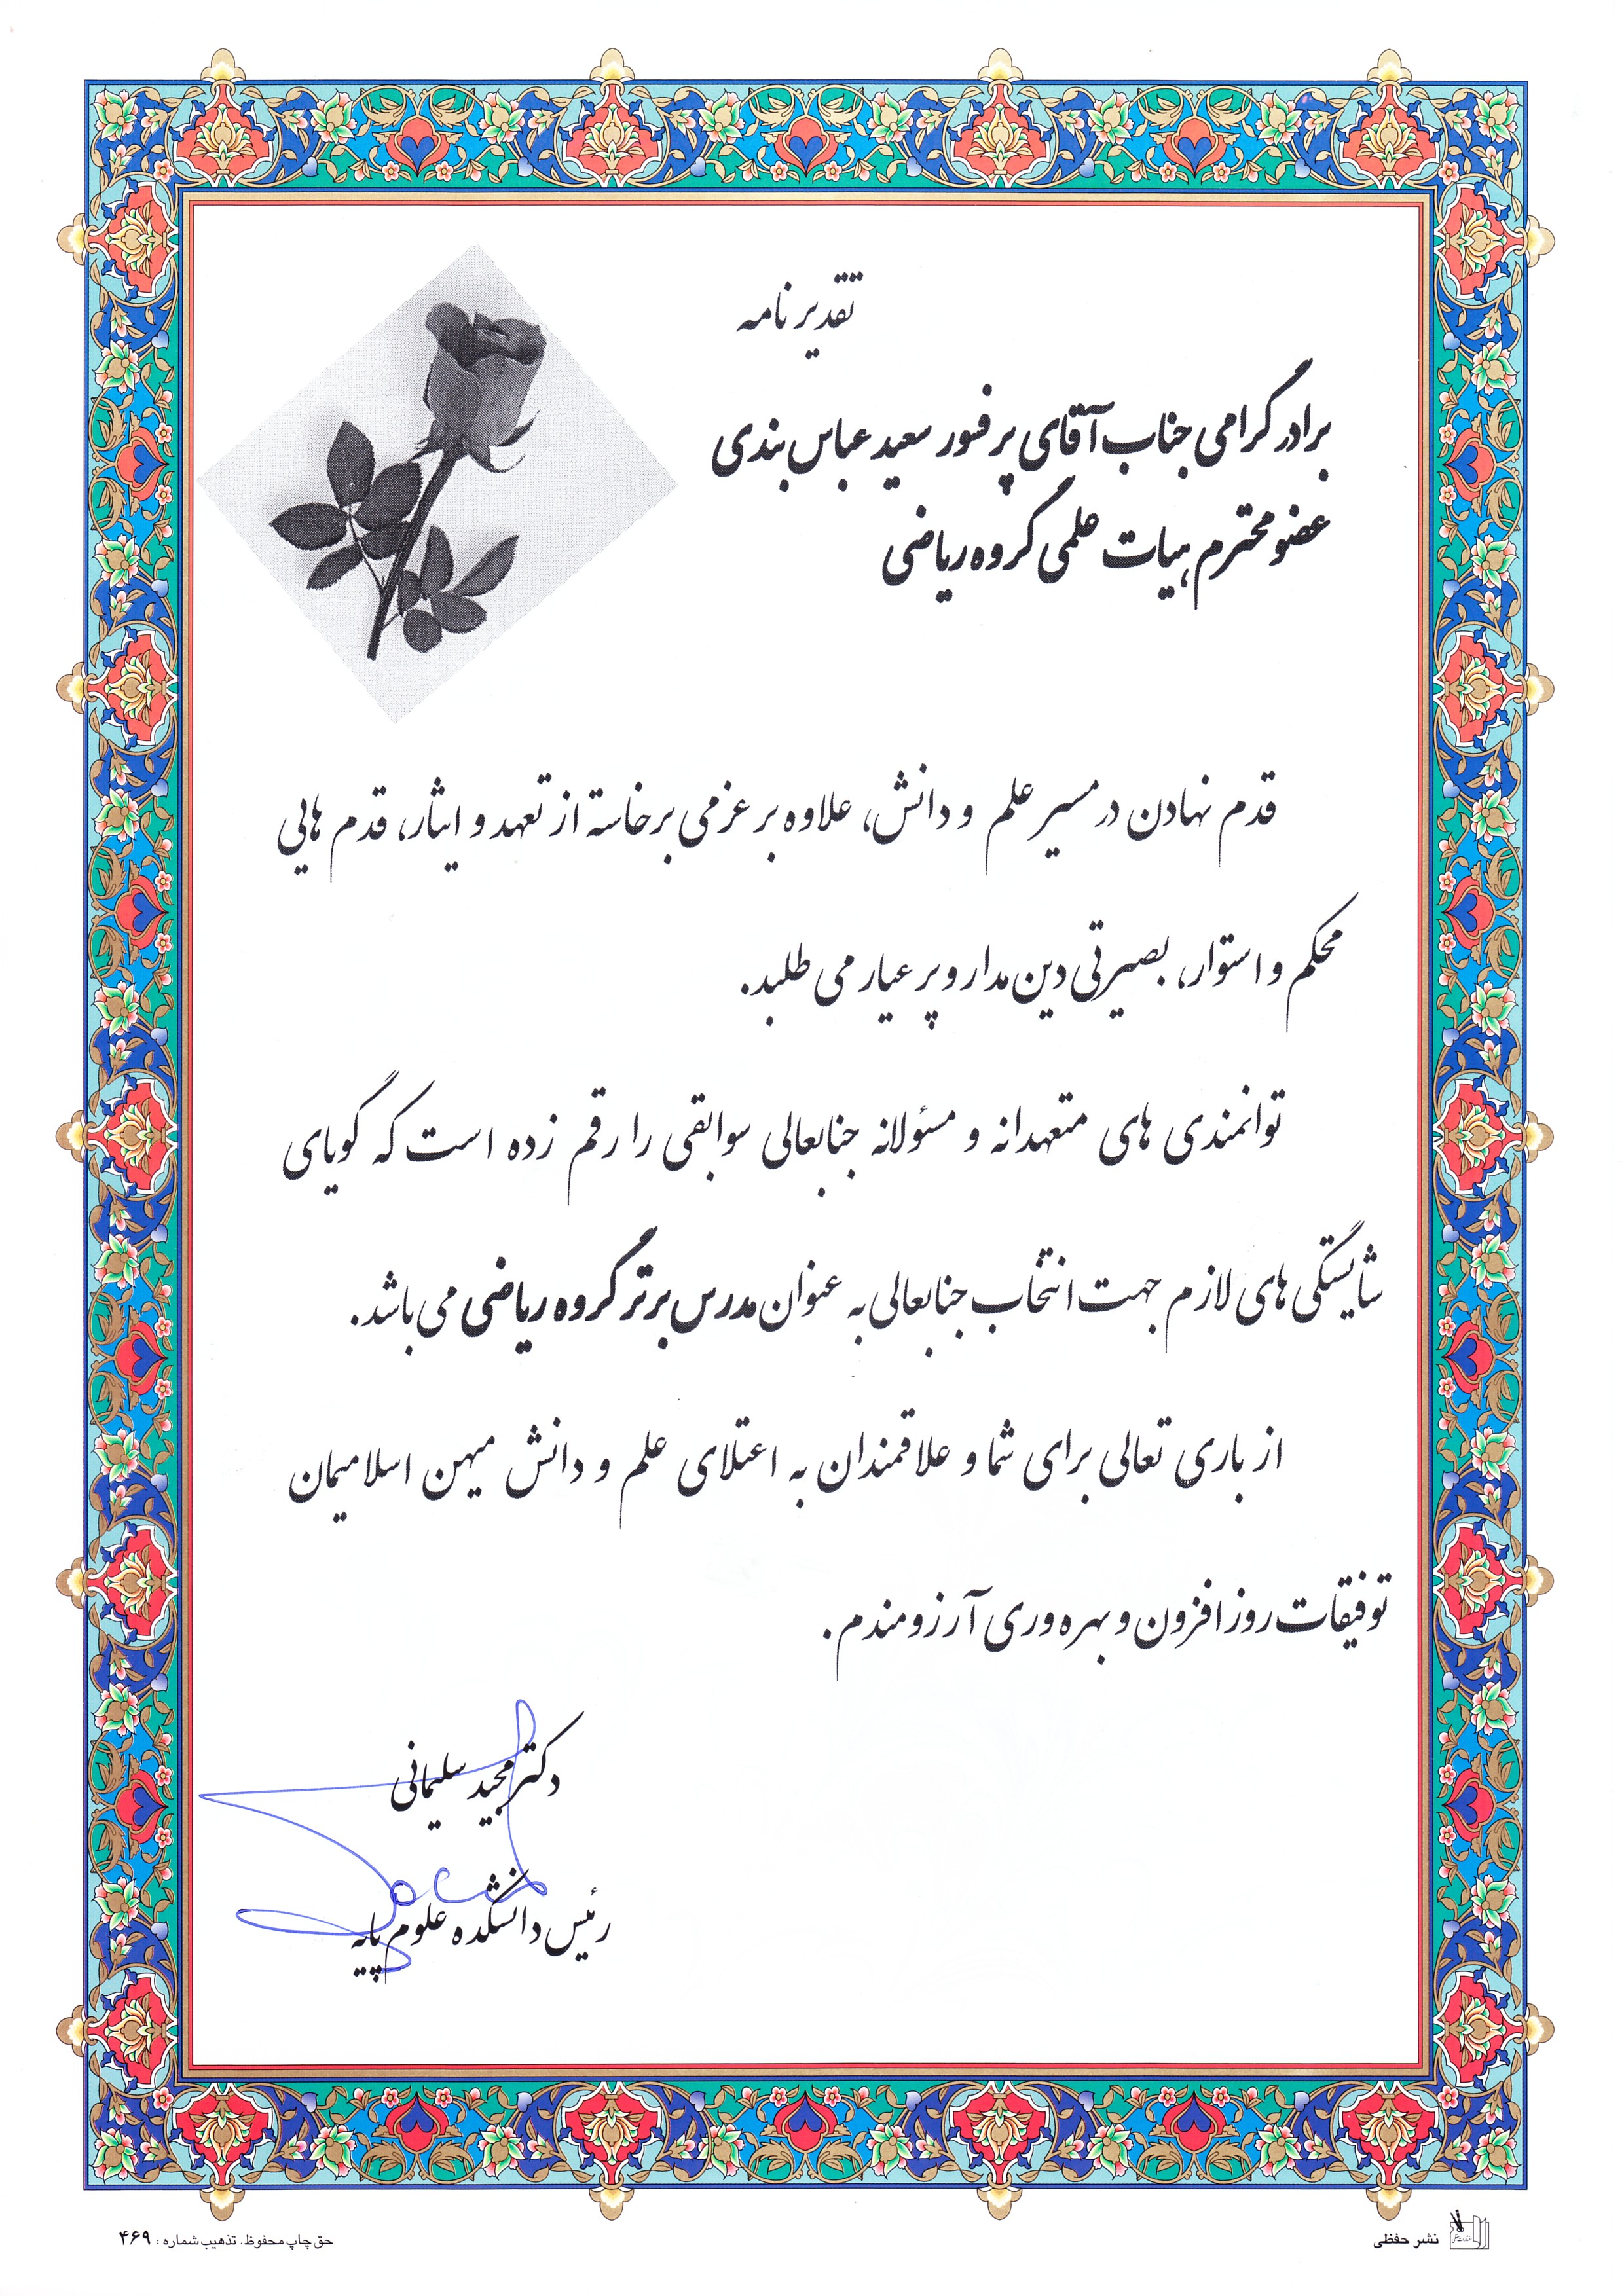 تقدیر نامه
برادر گرامی جناب آقای پرفسور سعید عباس بندی
عضو محترم هیات علمی گروه ریاضی
قدم نهادن در مسیر علم و دانش، علاوه بر عزمی برخاسته از تعهد و ایثار، قدم هایی
محکم و استوار، بصیرتی دین مدار و پر عیار می طلبد.
توانمندی های متعهدانه و مسئولانه جنابعالی سوابقی را رقم زده است که گویای
شایستگی های لازم جهت انتخاب جنابعالی به عنوان مدرس برتر گروه ریاضی می باشد.
از باری تعالی برای شما و علاقمندان به اعتلای علم و دانش میهن اسلامیمان
توفیقات روز افزون و بهره وری آرزومندم.
دکتر مجید سلیمانی
رئیس دانشکده علوم پایه
نشر حفظی
حق چاپ محفوظ. تذهیب شماره : ۴۶۹